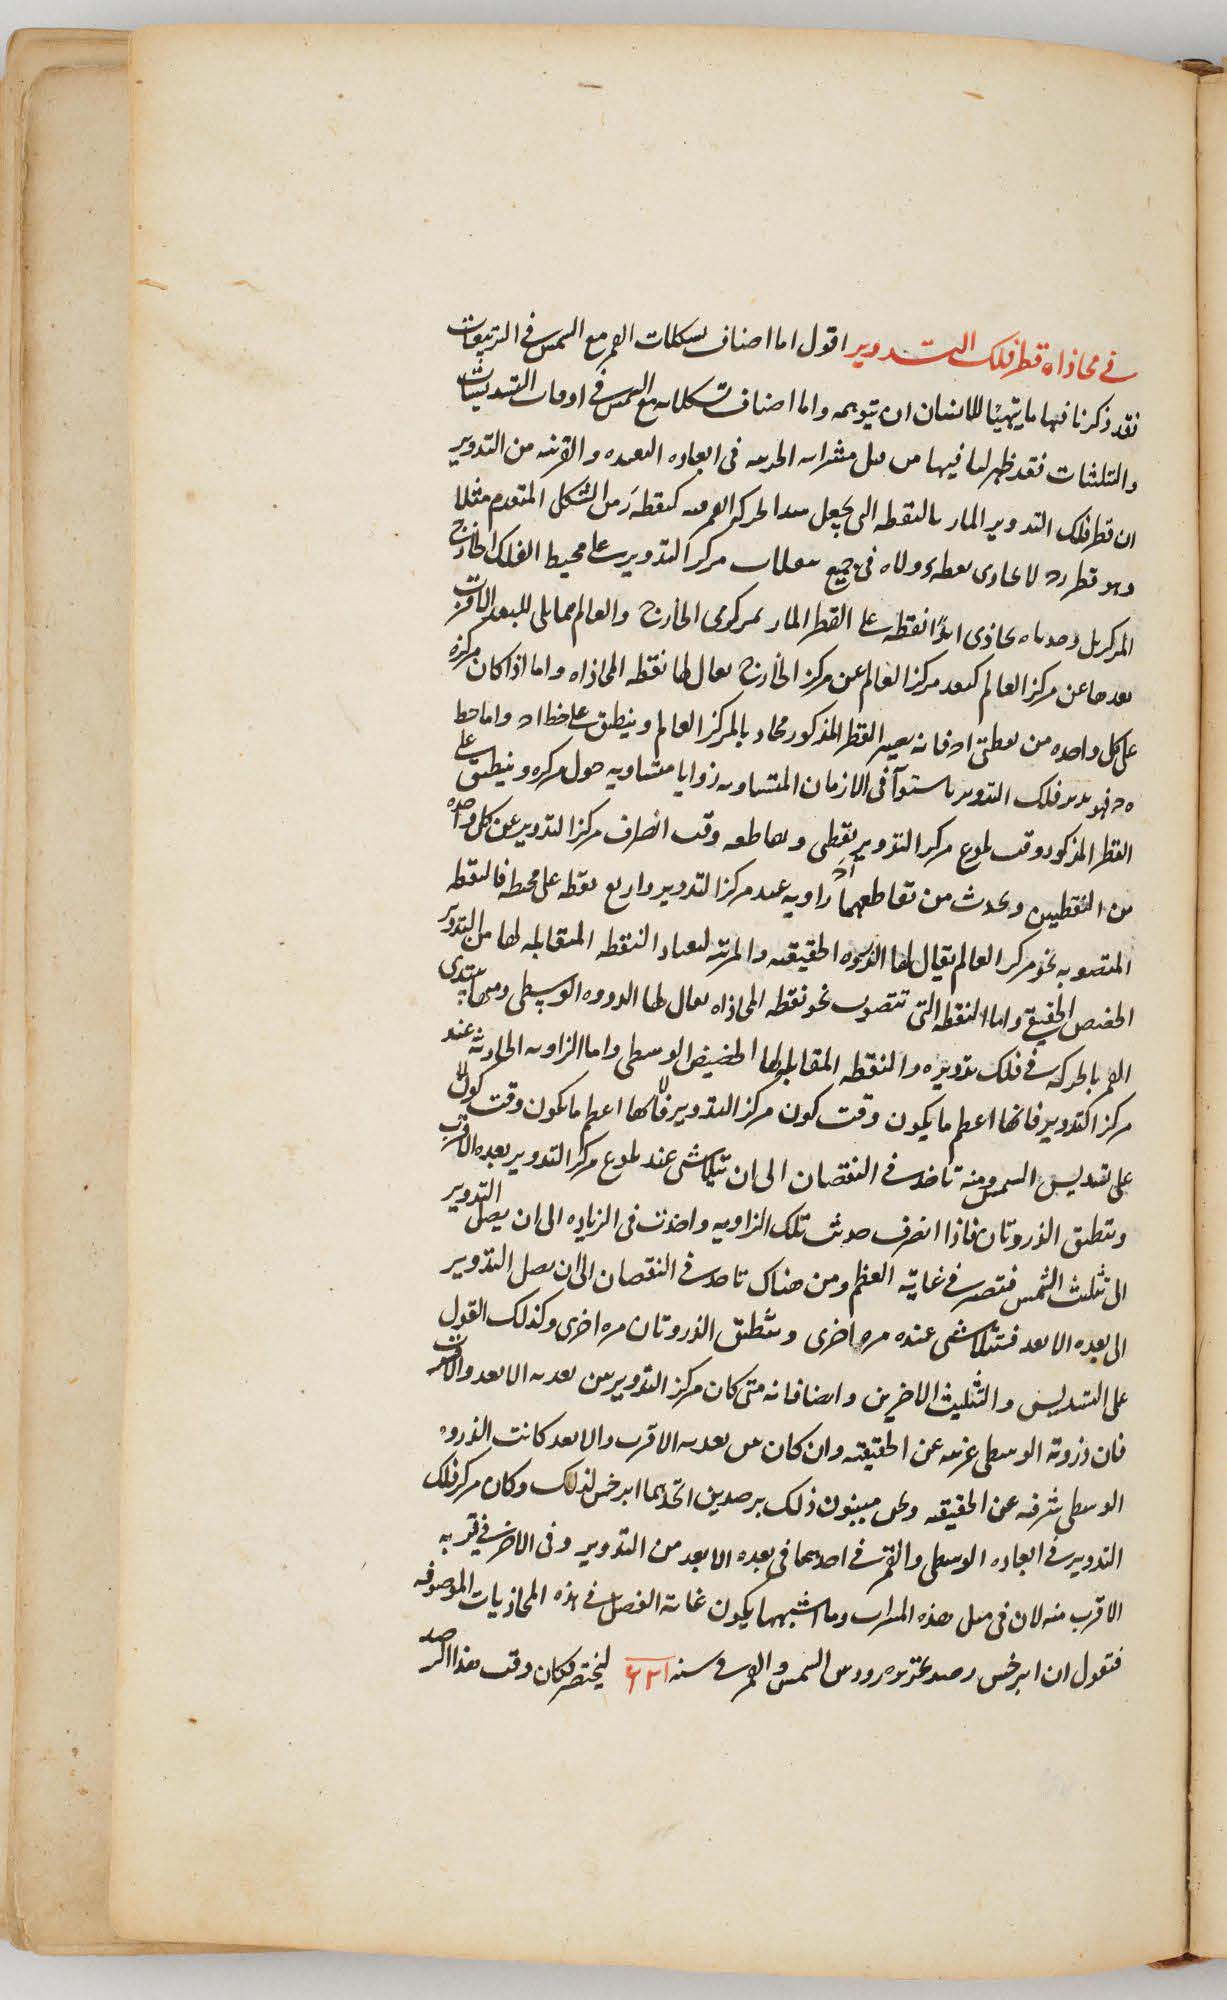 في محاذاه قطر فلك التدوير اقول اما اصناف تشكلات القمر مع الشمس في التربيعات
فقد ذكرنا فيها ما يتهيئا للانسان ان يتوهمه واما اصناف تشكلاته مع الشمس في اوقات التسديسات
والتثليثات فقد ظهر لنا فيها من قبل مقدار الحركة في ابعاده البعيده والقريبه من التدوير
ان قطر فلك التدوير المار بالنقطه التي يجعل مبدا لحركه القمر فيه كنقطه ر من الشكل المتقدم مثلا
وهو قطر ره لا يحاذي نقطه ولاه في جميع تنقلات مركز التدوير على محيط الفلك الخارج
المركز بل وجدناه يحاذي ابدًا نقطه على القطر المار بمركزي الخارج والعالم مما يلي للبعد الاقرب
بعدها عن مركز العالم كبعد مركز العالم عن مركز الخارج يقال لها نقطه المحاذاه واما اذا كان مركزه
على كل واحده من نقطتي اح فانه يصير القطر المذكور محاذيا لمركز العالم وينطبق على خط اح واما خط
فهو يدير فلك التدوير باستوآ في الازمان المتساويه زوايا متساويه حول مركزه وينطبق على
القطر المذكور وقت بلوغ مركز التدوير نقطتي اح ويقاطعه وقت انصراف مركز التدوير عن كل واحده
من النقطتين ويحدث من تقاطعهما زاويه عند مركز التدوير واربع نقطه على محيطه فالنقطه
المتصوبه نحو مركز العالم يقال لها الذروه الحقيقيه والمرئيه ايضا والنقطه المقابله لها من التدوير
الحضيض الحقيقي واما النقطه التي تتصوب نحو نقطه المحاذاه يقال لها الذروه الوسطى ومنها يبتدي
القمر بالحركه في فلك تدويره والنقطه المقابله لها الحضيض الوسطى واما الزاويه الحادثه عند
مركز التدوير فانها اعظم ما يكون وقت كون مركز التدوير فانها اعظم ما يكون وقت كون
على تسديس الشمس ومنه تاخذ في النقصان الى ان يتلاشى عند بلوغ مركز التدوير بعده الاقرب
وتنطبق الذروتان فاذا انصرف حدثت تلك الزاويه واخذت في الزياده الى ان يصل التدوير
الى تثليث الشمس فتصير في غايه العظم ومن هناك تاخذ في النقصان الى ان يصل التدوير
الى بعده الابعد فتتلاشى عنده مره اخرى وتنطبق الذروتان مره اخرى وكذلك القول
على التسديس والتثليث الاخرين وايضا فانه متى كان مركز التدوير بين بعديه الابعد والاقرب
فان ذروته الوسطى غربيه عن الحقيقيه وان كان بين بعديه الاقرب والابعد كانت الذروه
الوسطى شرقيه عن الحقيقيه ونحن مبينون ذلك برصدين اتخذهما ابرخس لذلك وكان مركز فلك
التدوير في ابعاده الوسطى والقمر في احدهما في بعده الابعد من التدوير وفي الاخر في قربه
الاقرب منه لان في مثل هذه المراتب وما اشبهها يكون غايه الفضل في هذه المحاذيات الموصوفه
فنقول ان ابرخس رصد بجزيره رودس الشمس والقمر في سنه ٦٢١ لبختنصر وكان وقت هذا الرصد